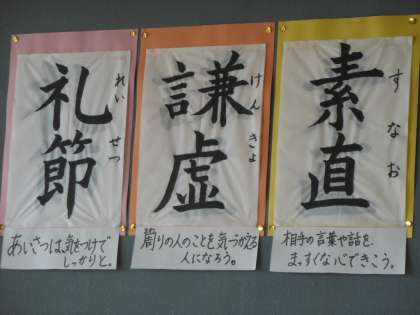 素直
すなお
相手の言葉や話を、
まっすぐな心できこう。
謙虚
けんきょ
周りの人のことを気づかえる
人になろう。
礼節
れいせつ
あいさつは気をつけで
しっかりと。